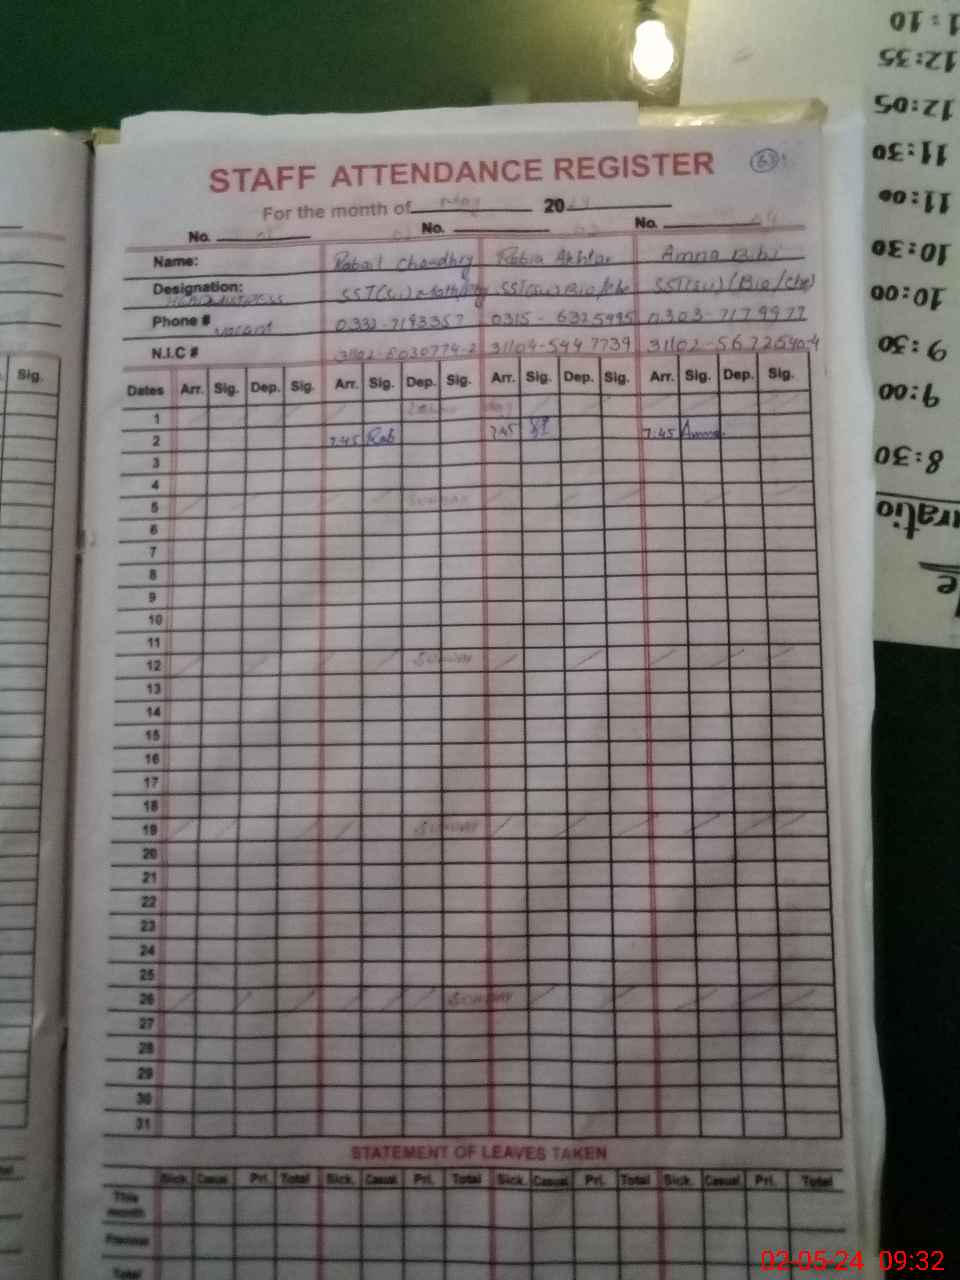 STAFF ATTENDANCE REGISTER 63
For the month of May 2024
No. 01 02 No. 03 No. 04
Name: Rabail Choudhry Rabia Akhtar Amna Bibi
Designation: HEADMISTRESS SST(Sci) Math/Phy SST(Sci) Bio/Che SST(Sci) (Bio/Che)
Phone # vacant 0332-7193357 0315-6325495 0303-7179977
N.I.C # 31102-5672640-4
Sig. Dates Arr. Sig. Dep. Sig. Arr. Sig. Dep. Sig. Arr. Sig. Dep. Sig. Arr. Sig. Dep. Sig.
1 Labour Day
2 7:45 Rab 7:45 7:45 Amna
3
4
5 SUNDAY
6
7
8
9
10
11
12 SUNDAY
13
14
15
16
17
18
19 SUNDAY
20
21
22
23
24
25
26 SUNDAY
27
28
29
30
31
STATEMENT OF LEAVES TAKEN
Sick. Casual Pri. Total Sick. Casual Pri. Total Sick. Casual Pri. Total Sick. Casual Pri. Total
This month
Previous
Total
8:30
9:00
9:30
10:00
10:30
11:00
11:30
12:05
12:35
1:10
02-05-24 09:32